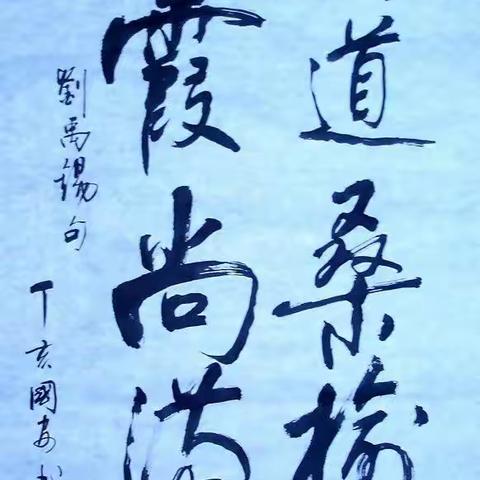 道桑榆
霞尚满
劉禹锡句
丁亥國安书